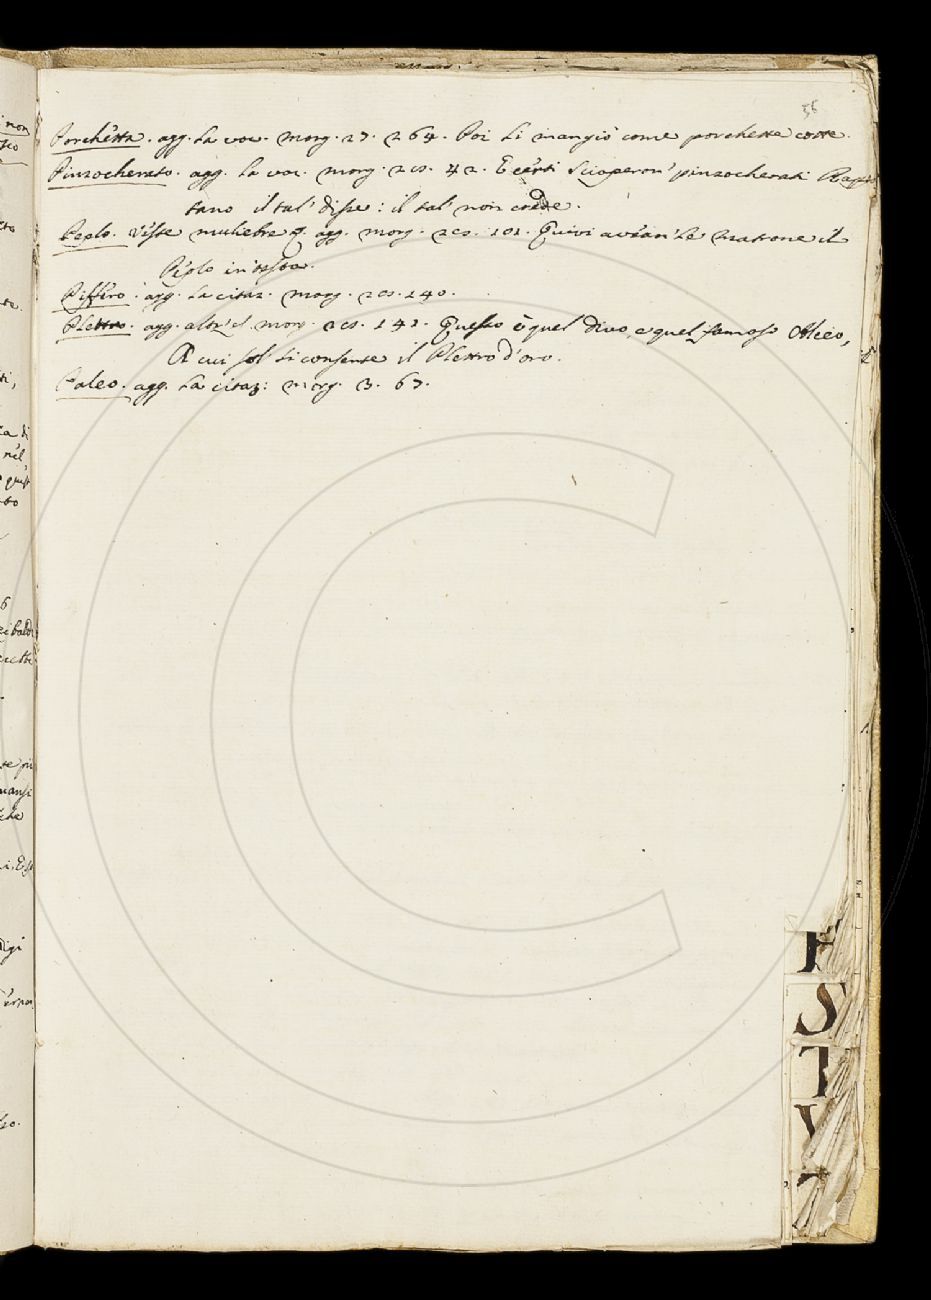 56
Porchetta. agg. la voc. morg. 27. 264. Poi li mangiò come porchette cotte.
Pinzocherato. agg. la voc. morg. 2co. 42. E certi scioperon' pinzocherati
tano il tal' disse: il tal' non crede.
Peplo. veste muliebre agg. morg. 2co. 101. Quivi avean' le matrone il
Peplo in testa.
Piffero. agg. la citaz. morg. 2co. 240.
Plettro. agg. morg. 2co. 142. Questo è quel divo, e quel famoso Alceo,
A cui sol' si consente il Plettro d'oro.
Paleo. agg. la citaz: morg. 3. 67.
S
T
V